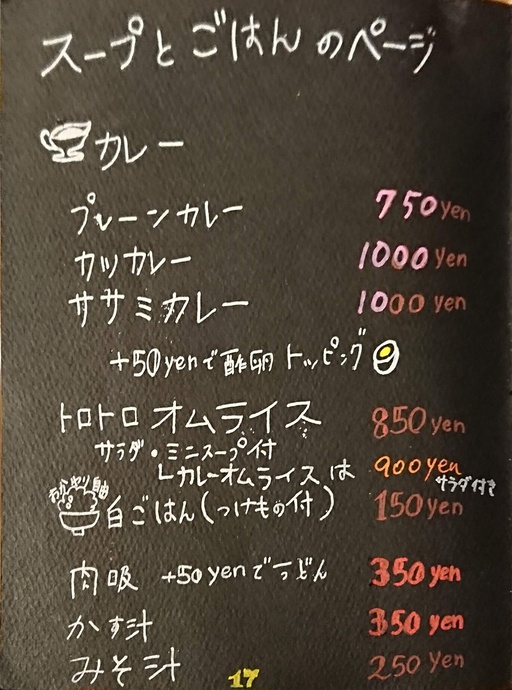 スープとごはんのページ
カレー
プレーンカレー 750yen
カツカレー 1000yen
ササミカレー 1000yen
+50yenで酢卵トッピング
トロトロオムライス 850yen
サラダ・ミニスープ付
└カレーオムライスは 900yen
サラダ付き
おかわり自由
白ごはん(つけもの付) 150yen
肉吸 +50yenでうどん 350yen
かす汁 350yen
みそ汁 250yen
17